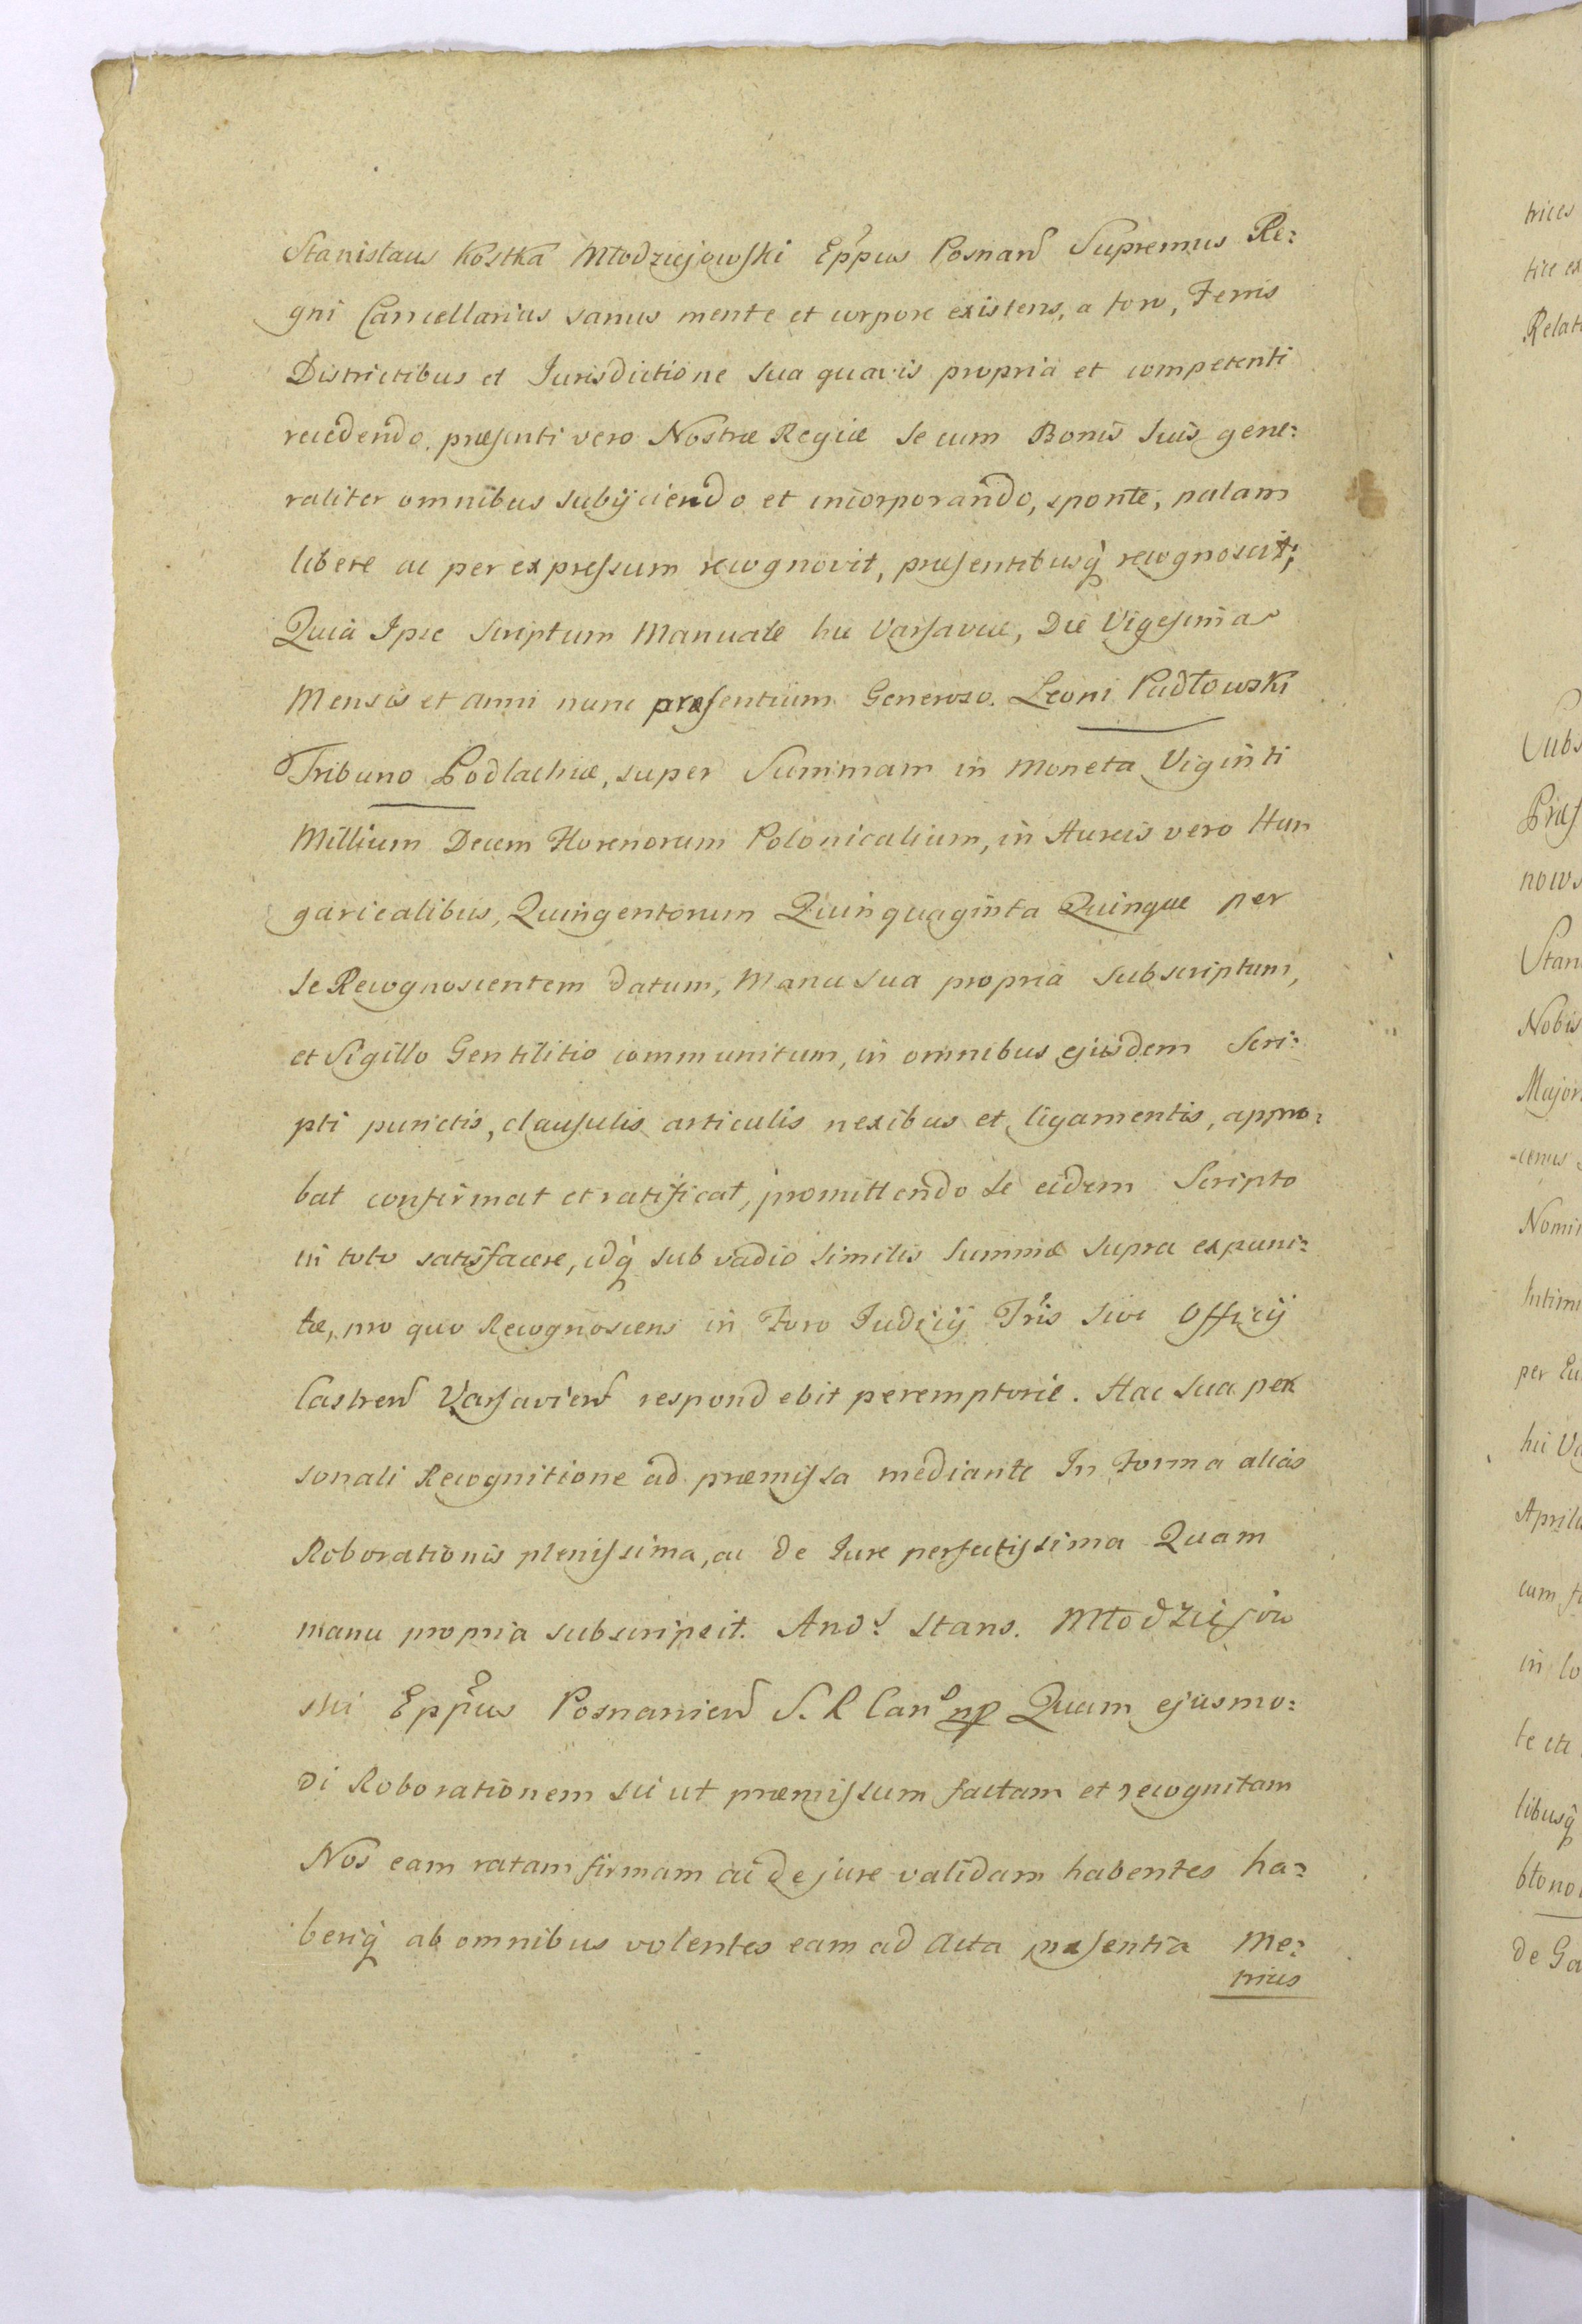 Stanislaus Kostka Młodziejowski Eppus Posnan Supremus Re:
gni Cancellarius sanus mente et corpore existens, a foro, Terris
Districtibus et Jurisdictione sua quavis propria et competenti
recedendo, præsenti vero Nostræ Regiæ se cum Bonis suis gene:
raliter omnibus subijciendo et incorporando, sponte, palam
libere ac per expressum recognovit, præsentibusq recognoscit;
Quia Ipse Scriptum Manuale hic Varsaviæ, Die Vigesima
Mensis et Anni nunc præsentium Generoso Leoni Pudłowski
Tribuno Podlachiæ, super Summam in Moneta Viginti
Millium Decem Florenorum Polonicalium, in Aureis vero Hun
garicalibus, Quingentorum Quinquaginta Quinque per
se Recognoscentem datum, Manu sua propria subscriptum,
et Sigillo Gentilitio communitum, in omnibus ejusdem Scri:
pti punctis, clausulis articulis nexibus et ligamentis, appro:
bat confirmat et ratificat, promittendo se eidem Scripto
in toto satisfacere, idq sub vadio similis summæ supra expuni:
tæ, pro quo Recognoscens in Foro Judicij Tris sive Officij
Castren Varsavien respondebit peremptorie. Hac sua per
sonali Recognitione ad præmissa mediante In Forma alias
Roborationis plenissima, ac de Jure perfectissima Quam
manu propria subscripsit. And: Stans. Młodziejow
ski Eppus Posnanien S. R Can mp Quam ejusmo:
di Roborationem sic ut præmissum factam et recognitam
Nos eam ratam firmam ac de jure validam habentes ha:
beriq ab omnibus volentes eam ad Acta præsentia Me:
trices
trices
Relat
Subs
Præs
nows
Stan
Nobis
Major
Nomi
Intim
per Eu
hic Va
Aprilis
cum
in lo
te et
libusq
de Ga